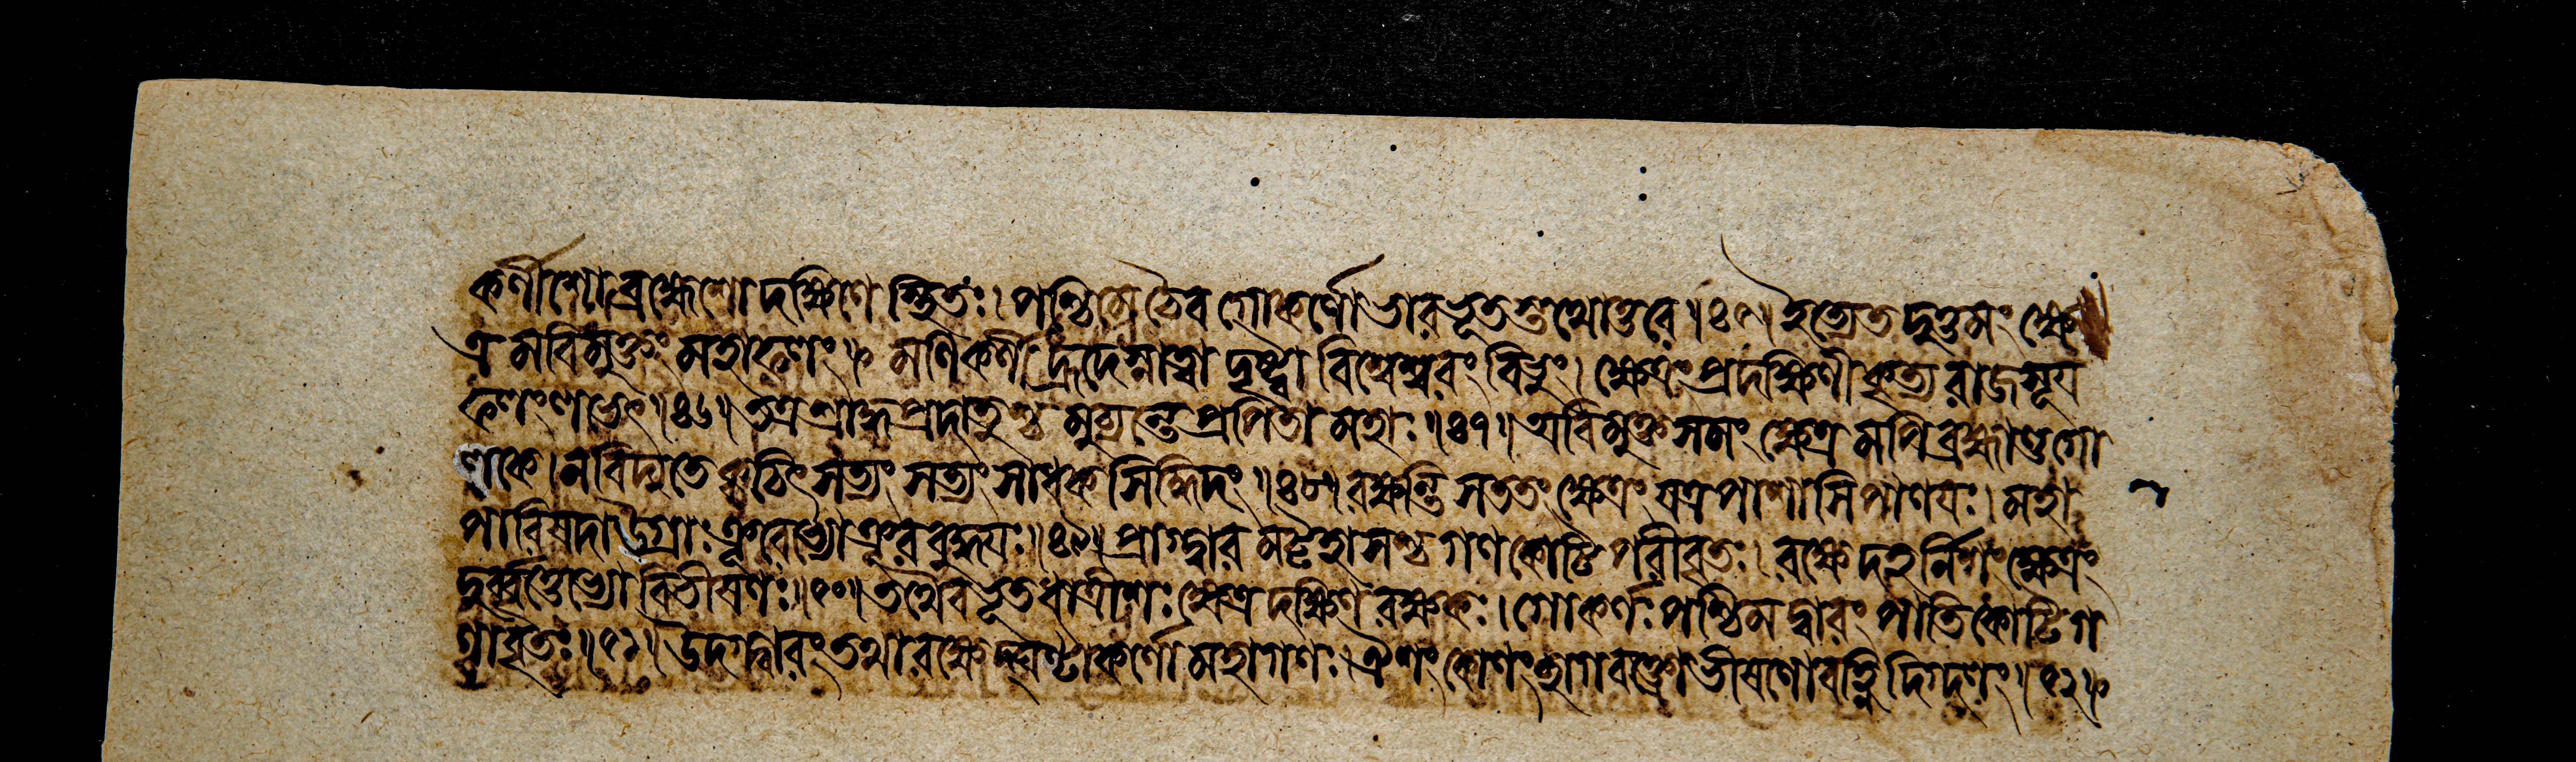 কর্ণীশো ব্রহ্মেশো দক্ষিণে স্থিতঃ। পশ্চিমে চৈব গোকর্ণো ভারভূতস্তথোত্তরে॥৪৫॥ ইত্যেতদুত্তমং ক্ষে
ত্রমবিমুক্তং মহাফলং॥ মণিকর্ণীহ্রদে স্নাত্বা দৃষ্ট্বা বিশ্বেশ্বরং বিভুং। ক্ষেত্রং প্রদক্ষিণীকৃত্য রাজসূয
ফলং লভেৎ॥৪৬॥ তত্র শ্রাদ্ধপ্রদাতুশ্চ মুচ্যন্তে প্রপিতামহাঃ॥৪৭॥ অবিমুক্তসমং ক্ষেত্রমপি ব্রহ্মাণ্ডগো
লকে। ন বিদ্যতে ক্বচিৎ সত্যং সত্যং সাধকসিদ্ধিদং॥৪৮॥ রক্ষন্তি সততং ক্ষেত্রং যত্র পাশাসিপাণযঃ। মহা
পারিষদা উগ্রাঃ ক্রূরেভ্যো ক্রূরবুদ্ধযঃ॥৪৯॥ প্রাগ্দ্বারমট্টহাসশ্চ গণকোটিপরীবৃতঃ। রক্ষেদহর্নিশং ক্ষেত্রং
দুর্বৃত্তেভ্যো বিভীষণঃ॥৫০॥ তথৈব ভূতধাত্রীশঃ ক্ষেত্রদক্ষিণরক্ষকঃ। গোকর্ণঃ পশ্চিমদ্বারং পাতি কোটিগ
ণাবৃতঃ॥৫১॥ উদগ্দ্বারং তথা রক্ষেদ্ঘণ্টাকর্ণো মহাগণঃ। ঐশং কোণং ছাগবক্ত্রো ভীষণো বহ্নিদিগ্দলং॥৫২॥